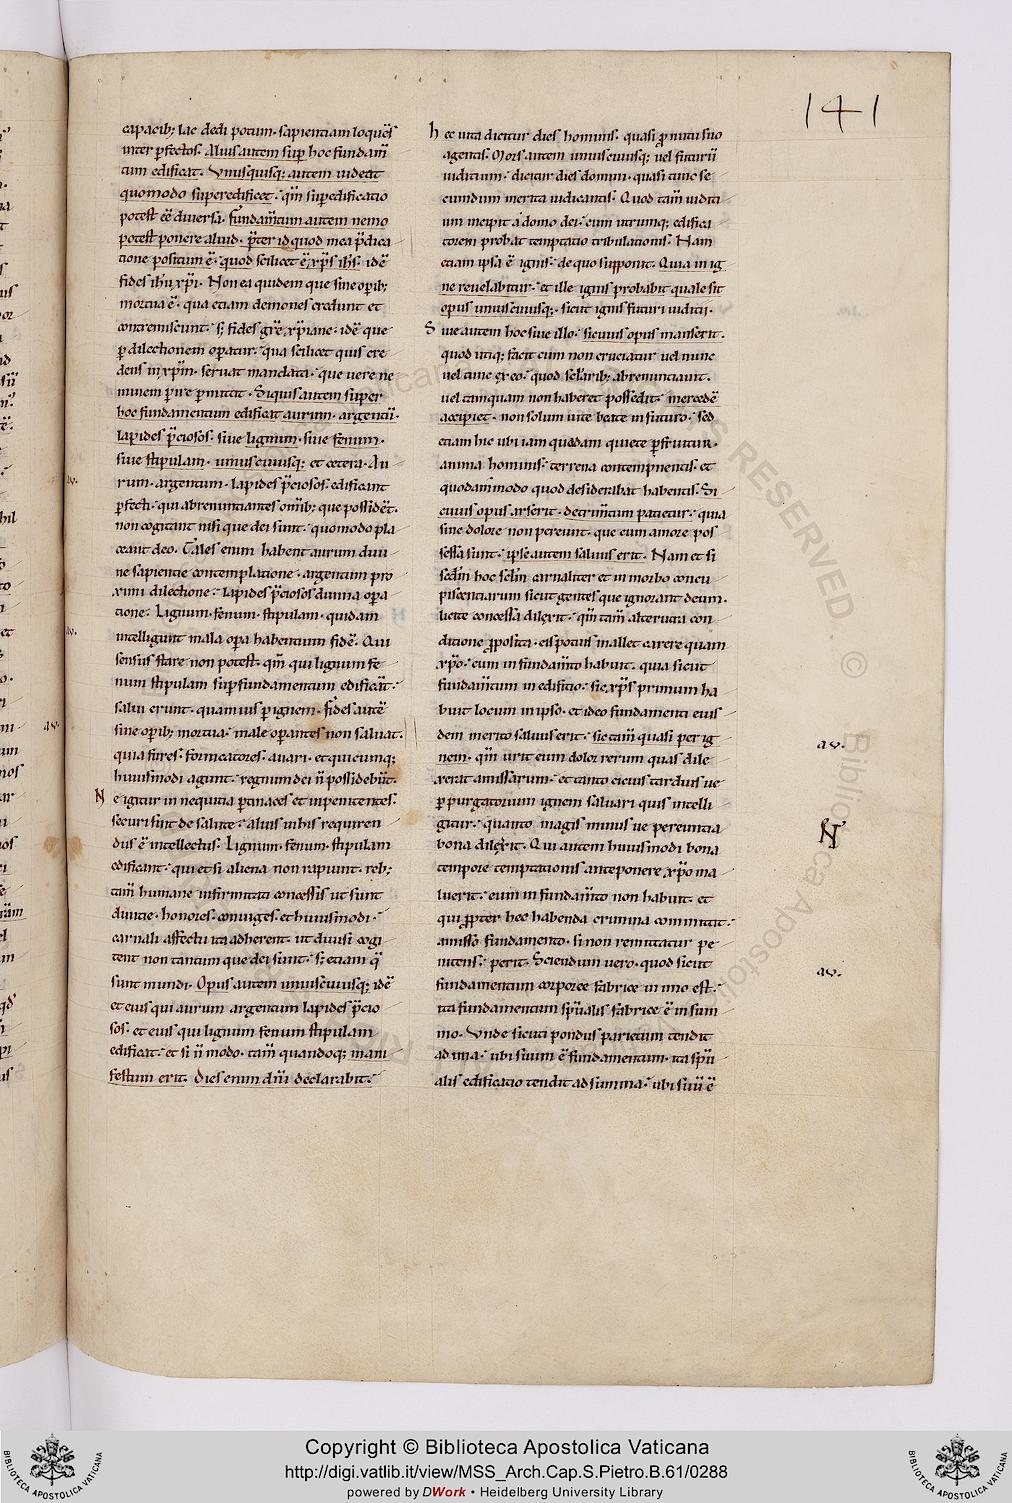 141
capacib; lac dedi potum. sapientiam loquēs
inter ꝑfectos. Alius autem suꝑ hoc fundam̄
tum edificat. Vnusquisq; autem uideat
quomodo superedificet. qm̄ suꝑedificatio
potest eē diuersa. fundam̄tum autem nemo
potest ponere aliud. p̄ter id quod mea p̄dica
tione positum ē. quod scilicet ē xp̄s ihs̄. idē
fides ihū xp̄i. Non ea quidem que sine oꝑib;
mortua ē. qua etiam demones credunt et
contremiscunt. s; fides grē xp̄iane. idē que
ꝑ dilectionem oꝑatur. qua scilicet quis cre
dens in xp̄m. seruat mandata. que uere ne
minem ꝑire ꝑmittit. Si quis autem super
hoc fundamentum edificat aurum. argentū.
lapides p̄ciosos. siue lignum. siue fenum.
siue stipulam. uniuscuiusq; et cetera. Au
rum. argentum. lapides p̄ciosos edificant
ꝑfecti. qui abrenuntiantes om̄ib; que possidēt.
non cogitant nisi que dei sunt. quomodo pla
ceant deo. Tales enim habent aurum diui
ne sapientie contemplatione. argentum pro
ximi dilectione. lapides p̄ciosos diuina oꝑa
tione. Lignum. fenum. stipulam. quidam
intelligunt mala oꝑa habentium fidē. Qui
sensus stare non potest. qm̄ qui lignum fe
num stipulam suꝑ fundamentum edificāt.
salui erunt. quamuis ꝑ ignem. fides autē
sine oꝑib; mortua. male oꝑantes non saluat.
quia fures. fornicatores. auari. et quicumq;
huiusmodi agunt. regnum dei n̄ possidebūt.
Ne igitur in nequitia ꝑtinaces et inpenitentes.
securi sint de salute. alius in his requiren
dus ē intellectus. Lignum. fenum. stipulam
edificant. qui etsi aliena non rapiunt. reb;
tam̄ humane infirmitati concessis ut sunt
diuitie. honores. coniuges. et huiusmodi.
carnali affectu ita adherent. ut diuisi cogi
tent non tantum que dei sunt. s; etiam q̄
sunt mundi. Opus autem uniuscuiusq; idē
et eius qui aurum argentum lapides p̄cio
sos. et eius qui lignum fenum stipulam
edificat. et si n̄ modo. tam̄ quandoq; mani
festum erit. Dies enim dn̄i declarabit.
hec uita dicitur dies hominis. quasi ꝑ nutu suo
agentis. Mors autem uniuscuiusq; uel futurū
iuditium. dicitur dies domini. quasi tunc se
cundum merita iudicantis. Quod tam̄ iuditi
um incipit a domo dei. cum utrumq; edifica
torem probat temptatio tribulationis. Nam
etiam ipsa ē ignis. de quo supponit. Quia in ig
ne reuelabitur. et ille ignis probabit quale sit
opus uniuscuiusq;. sicut ignis futuri iuditii.
Siue autem hoc siue illo. si cuius opus manserit.
quod utiq; facit eum non cruciatur uel nunc
uel tunc ex eo. quod scl̄arib; abrenuntiauit.
uel tamquam non haberet possedit. mercedē
accipiet. non solum uite beate in futuro. sed
etiam hic ubi iam quadam quiete ꝑfruitur.
anima hominis. terrena contempnentis. et
quodam̄modo quod desiderabat habentis. Si
cuius opus arserit. detrim̄tum patietur. quia
sine dolore non pereunt. que cum amore pos
sessa sunt. ipse autem saluus erit. Nam et si
scd̄m hoc scl̄m carnaliter et in morbo concu
piscentiarum sicut gentes que ignorant deum.
licite concessa dilexit. qm̄ tam̄ alterutra con
ditione ꝓposita. eis potius mallet carere quam
xp̄o. eum in fundam̄to habuit. quia sicut
fundam̄tum in edificio. sic xp̄s primum ha
buit locum in ipso. et ideo fundamenti eius
dem merito saluus erit. sic tam̄ quasi per ig
nem. qm̄ urit eum dolor rerum quas dile
xerat amissarum. et tanto cicius tardius ue
ꝑ purgatorium ignem saluari quis intelli
gitur. quanto magis minus ue pereuntia
bona dilexit. Qui autem huiusmodi bona
tempore temptationis anteponere xp̄o ma
luerit. eum in fundam̄to non habuit. et
qui ꝓpter hec habenda crimina committit.
amisso fundamento. si non remittatur pe
nitens. perit. Sciendum uero. quod sicut
fundamentum corporee fabrice in imo est.
ita fundamentum sp̄ualis fabrice ē in sum
mo. Vnde sicuti pondus parietum tendit
ad ima. ubi suum ē fundamentum. ita sp̄u
alis edificatio tendit ad summa. ubi suū ē
av.
N
av.
Copyright © Biblioteca Apostolica Vaticana
http://digi.vatlib.it/view/MSS_Arch.Cap.S.Pietro.B.61/0288
powered by DWork • Heidelberg University Library
BIBLIOTECA APOSTOLICA VATICANA
BIBLIOTECA APOSTOLICA VATICANA